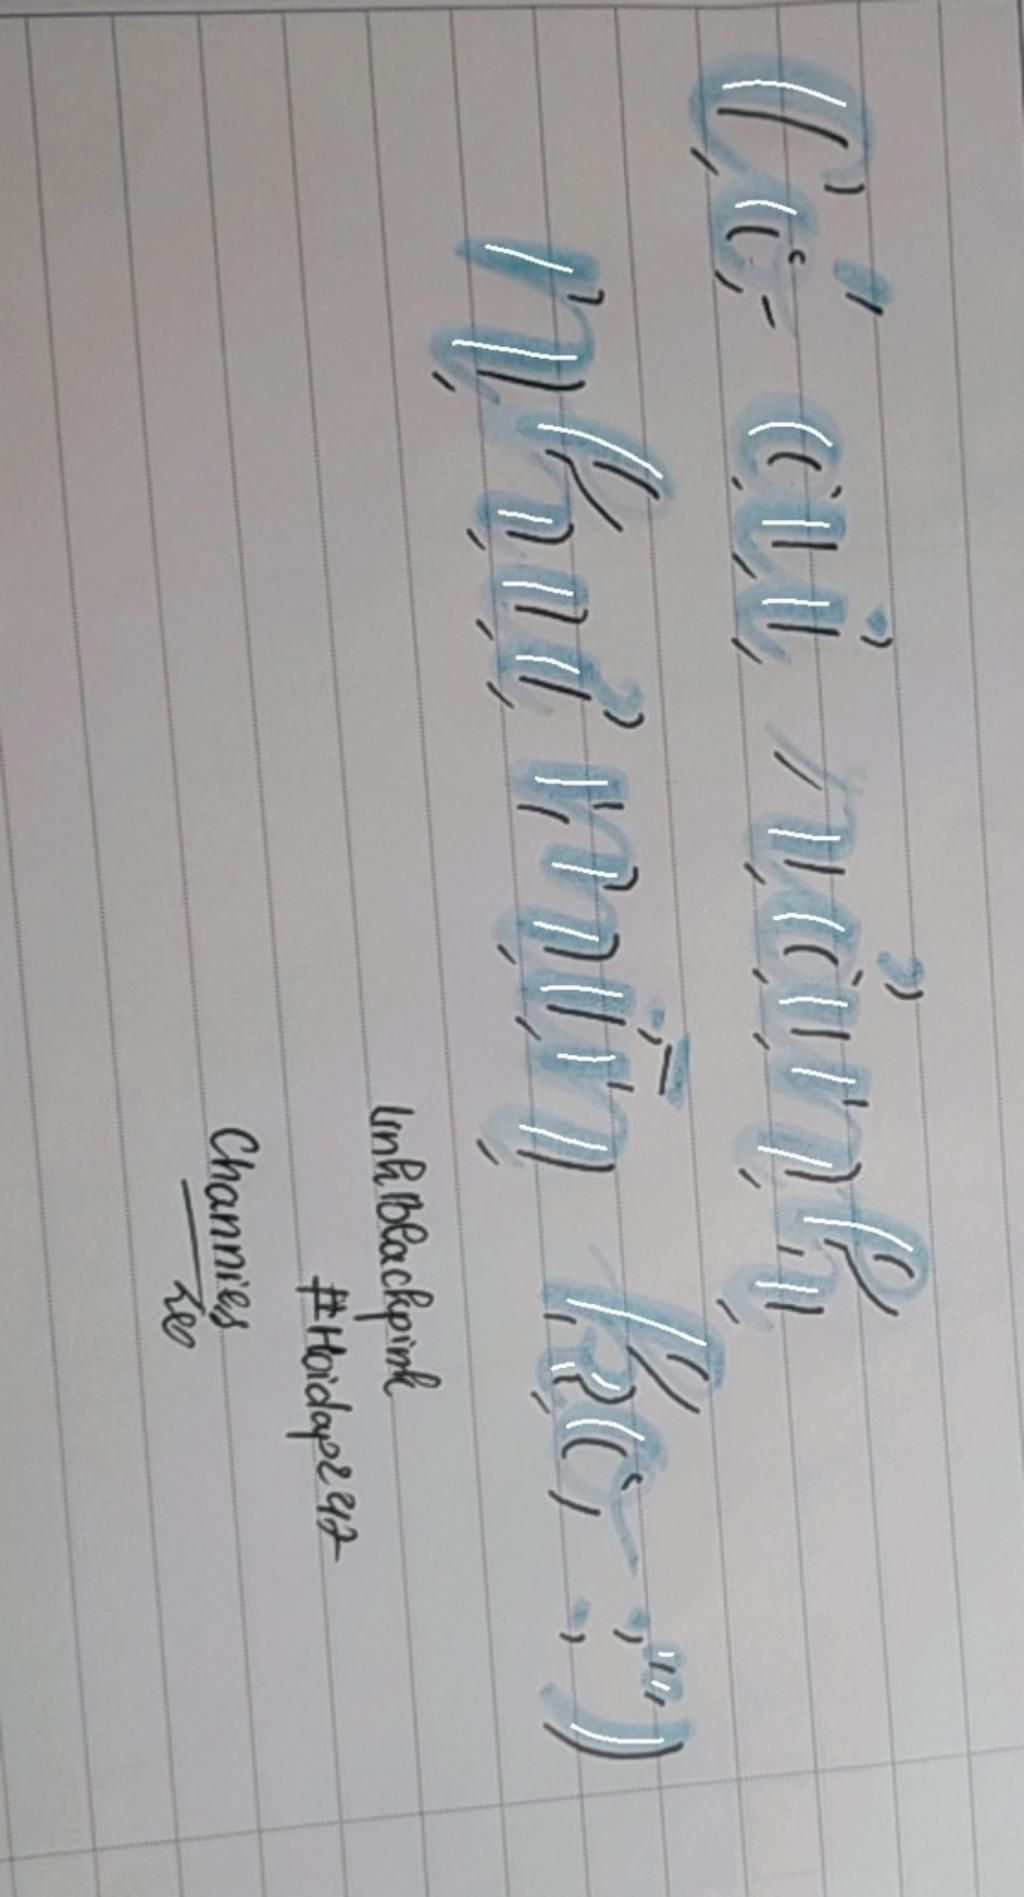 Có ai rảnh
như mìn ko :")
linhBlackpink
#Hoidap247
Channies